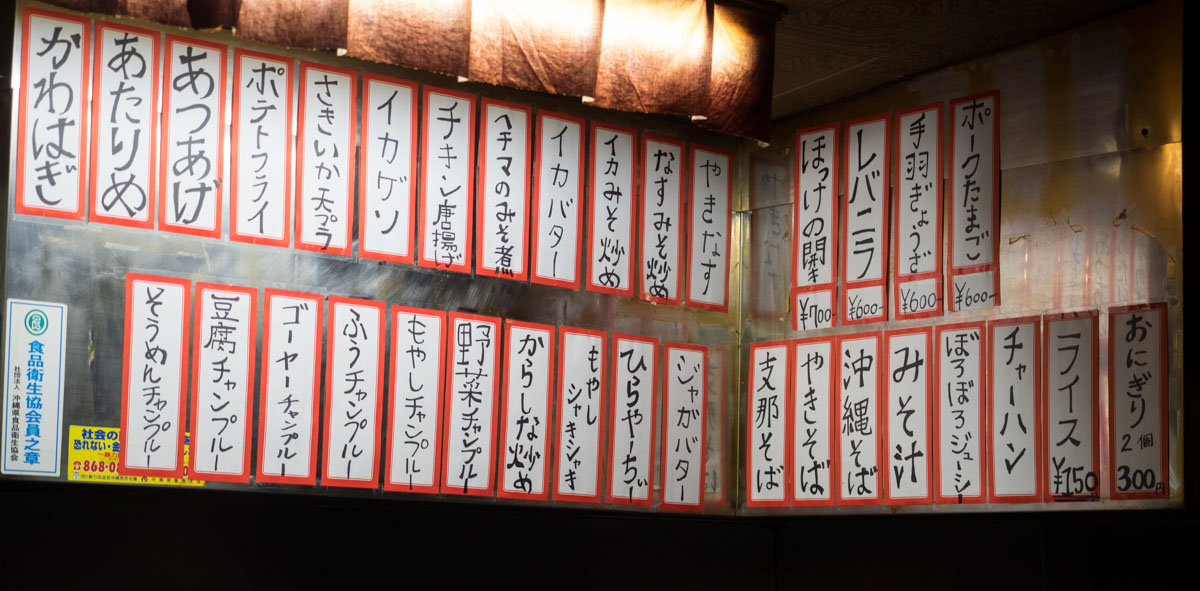 かわはぎ
あたりめ
あつあげ
ポテトフライ
さきいか天プラ
イカゲソ
チキン唐揚げ
ヘチマのみそ煮
イカバター
イカみそ炒め
なすみそ炒め
やきなす
ほっけの開き
¥700-
レバニラ
¥600-
手羽ぎょうざ
¥600-
ポークたまご
¥600-
そうめんチャンプルー
豆腐チャンプルー
ゴーヤーチャンプルー
ふうチャンプルー
もやしチャンプルー
野菜チャンプルー
からしな炒め
もやし
シャキシャキ
ひらやーちぃ
ジャガバター
支那そば
やきそば
沖縄そば
みそ汁
ぼろぼろジューシー
チャーハン
ライス
¥150
おにぎり
2個
300円
食品衛生協会員之章
社団法人 沖縄県食品衛生協会
社会の
恐れない・金
868-0